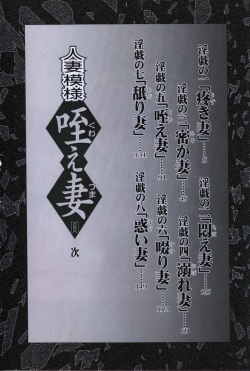 人妻模様
咥え妻
くわ
づま
目次
淫戯の一「疼き妻」……5
淫戯の二「悶え妻」……25
淫戯の三「密か妻」……47
淫戯の四「溺れ妻」……69
淫戯の五「咥え妻」……91
淫戯の六「啜り妻」……113
淫戯の七「舐り妻」……131
淫戯の八「惑い妻」……149